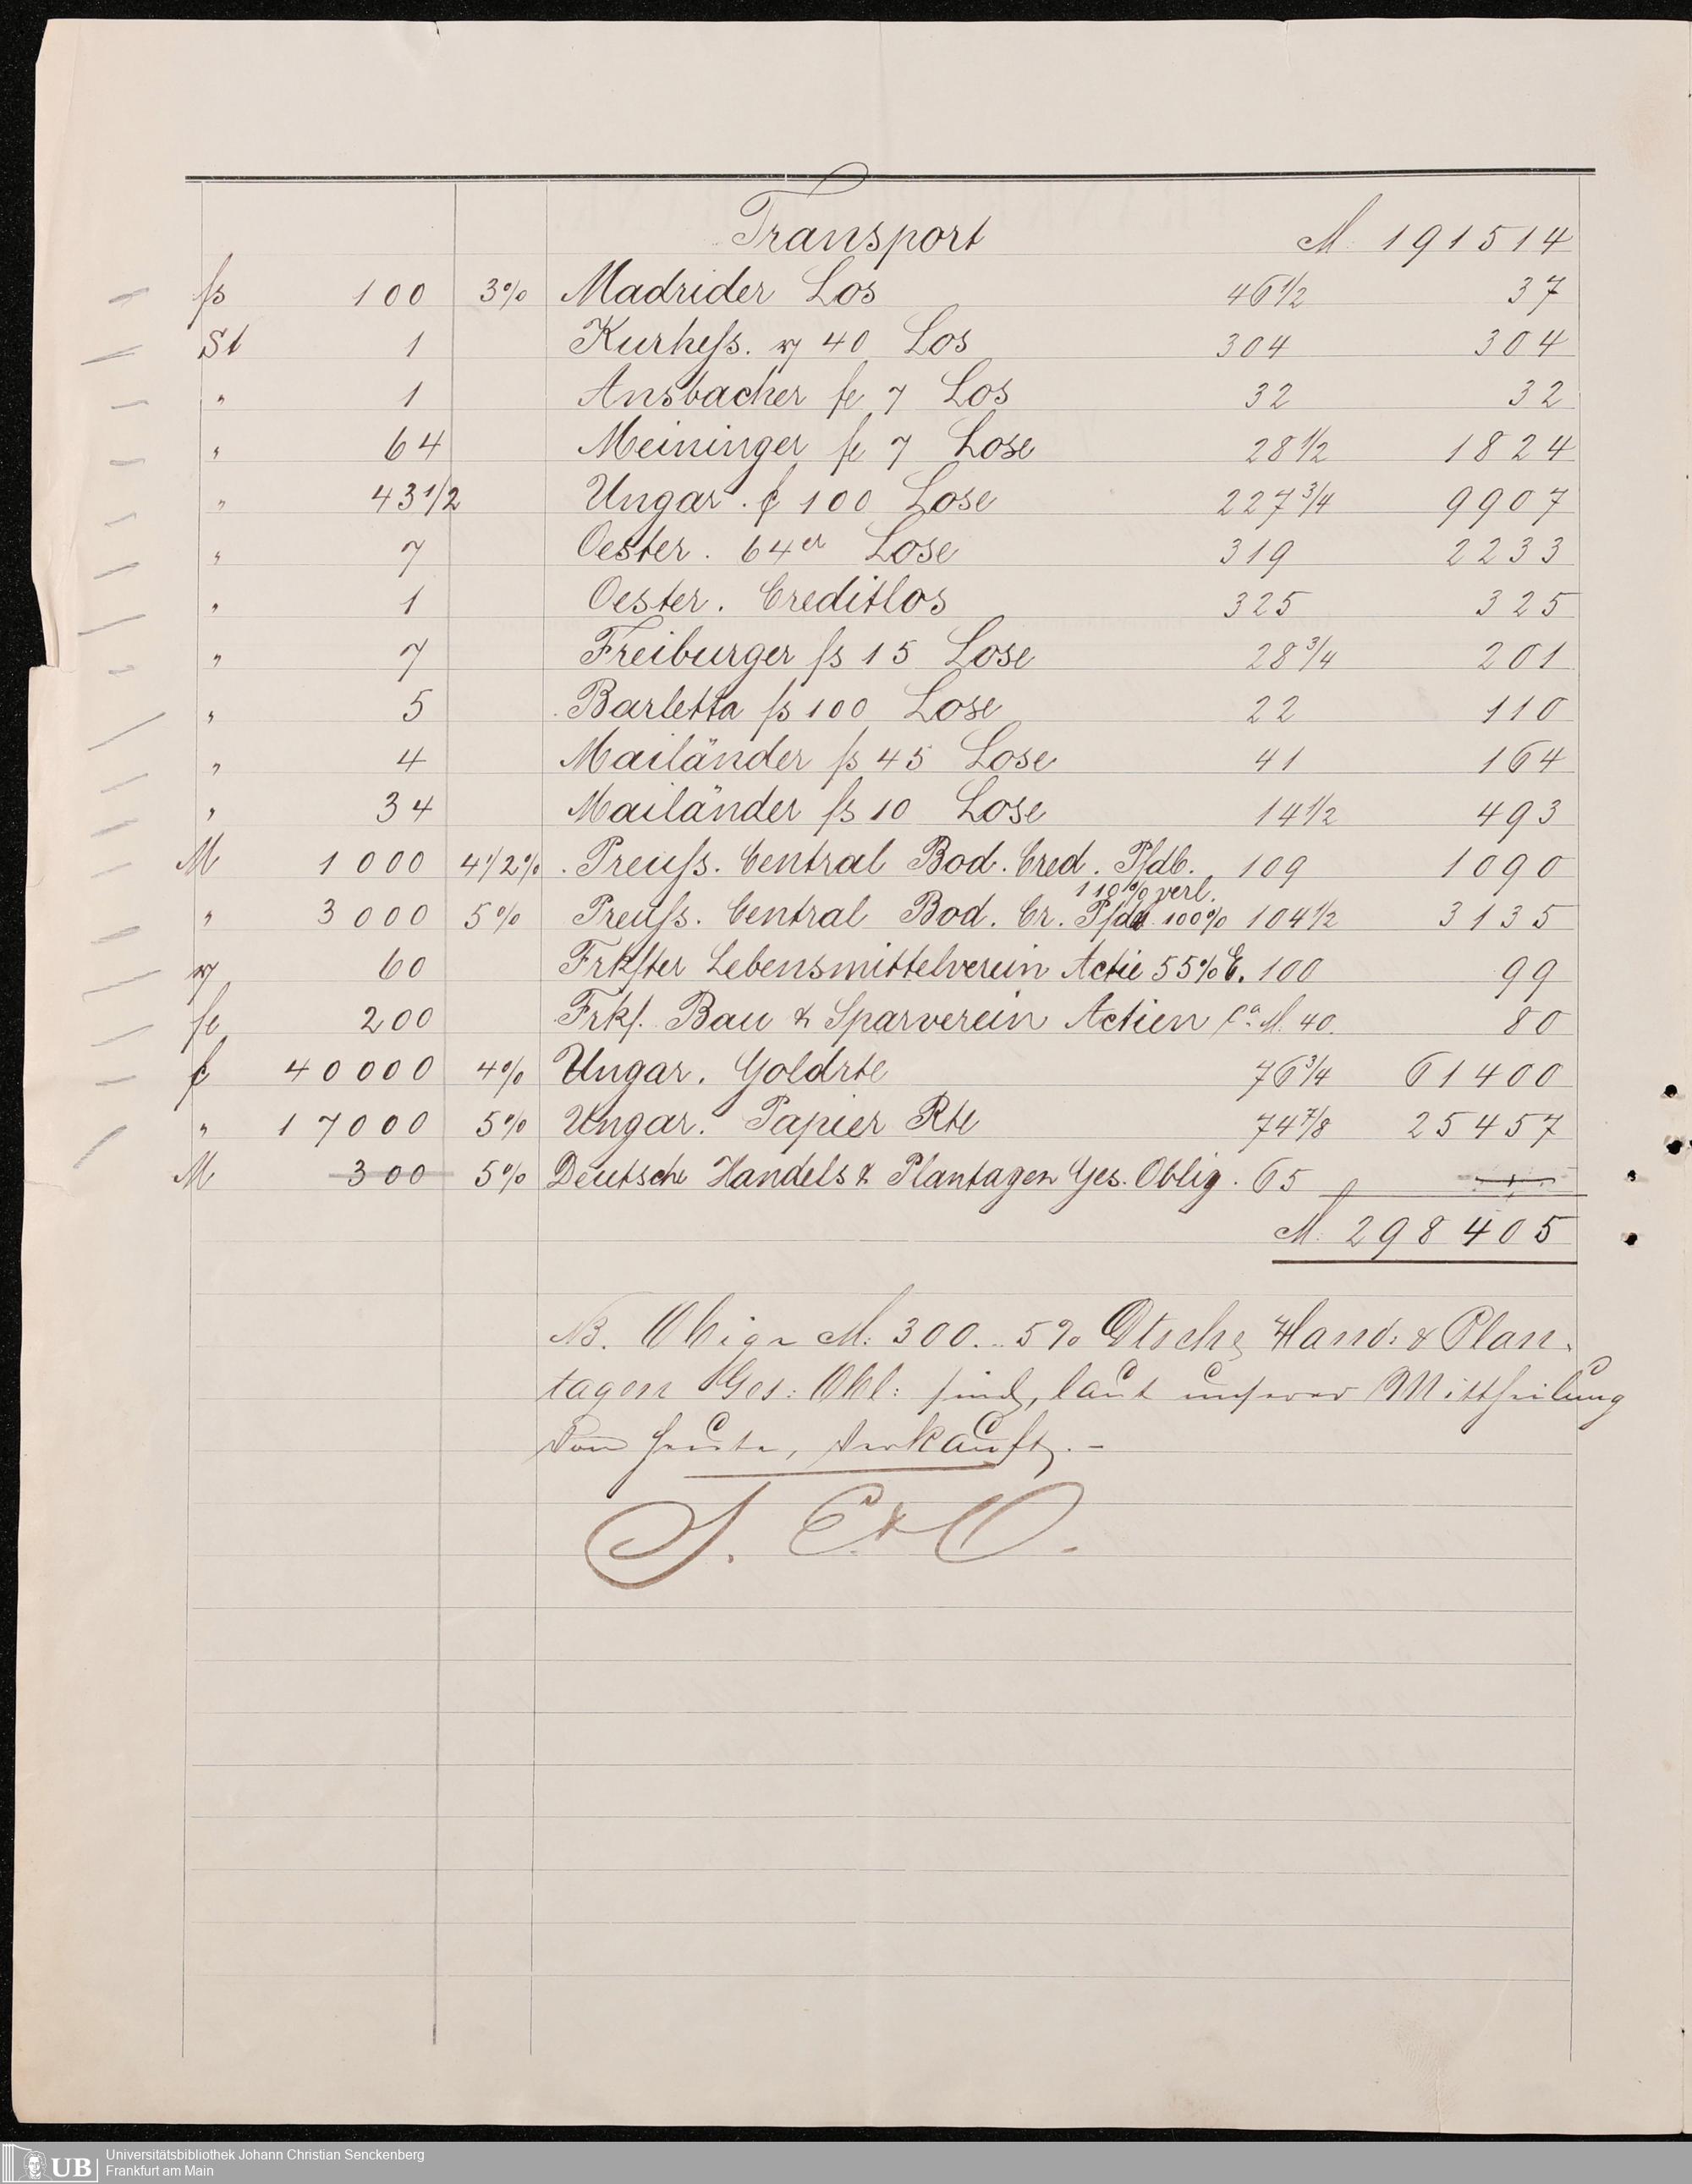 Transport M. 191514
fs 100 3% Madrider Los 46 1/2 37
St 1 Kurhess. rt 40 Los 304 304
" 1 Ansbacher fl 7 Los 32 32
" 64 Meininger fl 7 Lose 28 1/2 1824
" 43 1/2 Ungar. fl 100 Lose 227 3/4 9907
" 7 Oester. 64er Lose 319 2233
" 1 Oester. Creditlos 325 325
" 7 Freiburger fs 15 Lose 28 3/4 201
" 5 Barletta fs 100 Lose 22 110
" 4 Mailänder fs 45 Lose 41 164
" 34 Mailänder fs 10 Lose 14 1/2 493
M 1000 4 1/2% Preuss. Central Bod. Cred. Pfdb. 109 1090
110% verl.
" 3000 5% Preuss. Central Bod. Cr. Pfdb 100% 104 1/2 3135
rt 60 Frkfter Lebensmittelverein Actie 55% E. 100 99
fl 200 Frkf. Bau & Sparverein Actien ca. M. 40. 80
fl 40000 4% Ungar. Goldrte 76 3/4 61400
" 17000 5% Ungar. Papier Rte 74 7/8 25457
M 300 5% Deutsche Handels & Plantagen Ges. Oblig. 65
M. 298405
NB. Obige M. 300.. 5% Dtsche Hand: & Plan-
tagen Ges: Obl: sind, laut unserer Mittheilung
von heute, verkauft. –
S. E. & O.
Universitätsbibliothek Johann Christian Senckenberg
Frankfurt am Main
UB